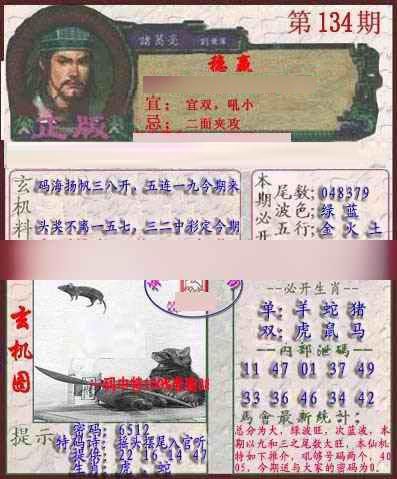 第134期
諸葛亮
稳赢
正版
宜： 宜双，吼小
忌： 二面夹攻
玄机料
码海扬帆三八开，五连一九今期来
头奖不离一五七，三二寸彩定今期
本期必开
尾数：048379
波色：绿 蓝
五行：金 火 土
必开生肖
单：羊 蛇 猪
双：虎 鼠 马
内部泄码
11 47 01 37 49
33 36 46 34 42
馬會最新统计：
总分为大，绿波旺，次蓝波，本
期以九和三之尾数大旺，本仙机
特如下推介，吼够号码两个，4
05，今期送与大家的密码为0。
玄机图
提示
密码：6512
特码诗：接头摆尾入官听
提倍：22 16 14 47
生肖：虎、蛇